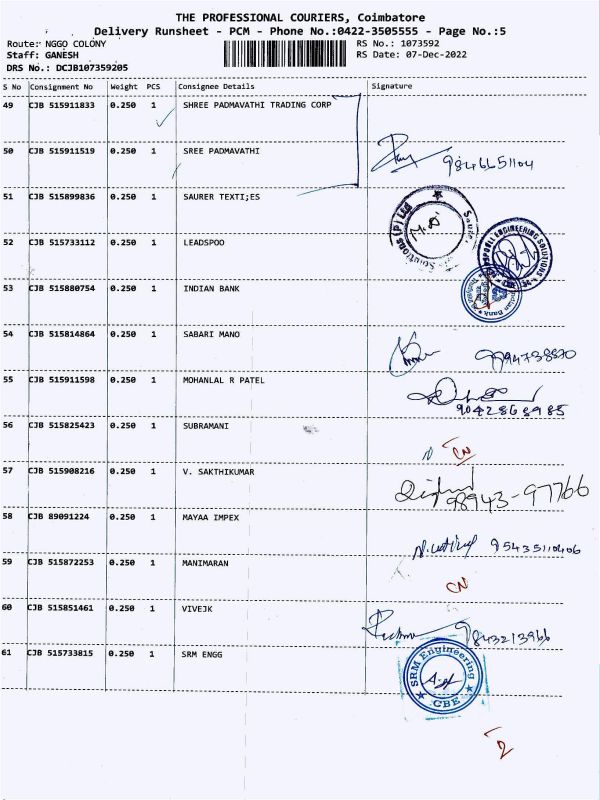 THE PROFESSIONAL COURIERS, Coimbatore
Delivery Runsheet - PCM - Phone No.:0422-3505555 - Page No.:5
Route: NGGO COLONY
RS No.: 1073592
Staff: GANESH
RS Date: 07-Dec-2022
DRS No.: DCJB107359205
S No Consignment No Weight PCS Consignee Details Signature
49 CJB 515911833 0.250 1 SHREE PADMAVATHI TRADING CORP
50 CJB 515911519 0.250 1 SREE PADMAVATHI
9846651104
51 CJB 515899836 0.250 1 SAURER TEXTI;ES
Solutions (P) Ltd
52 CJB 515733112 0.250 1 LEADSPOO
ENGINEERING SOLUTIONS
53 CJB 515880754 0.250 1 INDIAN BANK
Indian Bank
54 CJB 515814864 0.250 1 SABARI MANO
9994738870
55 CJB 515911598 0.250 1 MOHANLAL R PATEL
9042868985
56 CJB 515825423 0.250 1 SUBRAMANI
CN
57 CJB 515908216 0.250 1 V. SAKTHIKUMAR
98943-97766
58 CJB 89091224 0.250 1 MAYAA IMPEX
95435110406
59 CJB 515872253 0.250 1 MANIMARAN
CN
60 CJB 515851461 0.250 1 VIVEJK
9843213966
61 CJB 515733815 0.250 1 SRM ENGG
SRM Engineering
CBE
2